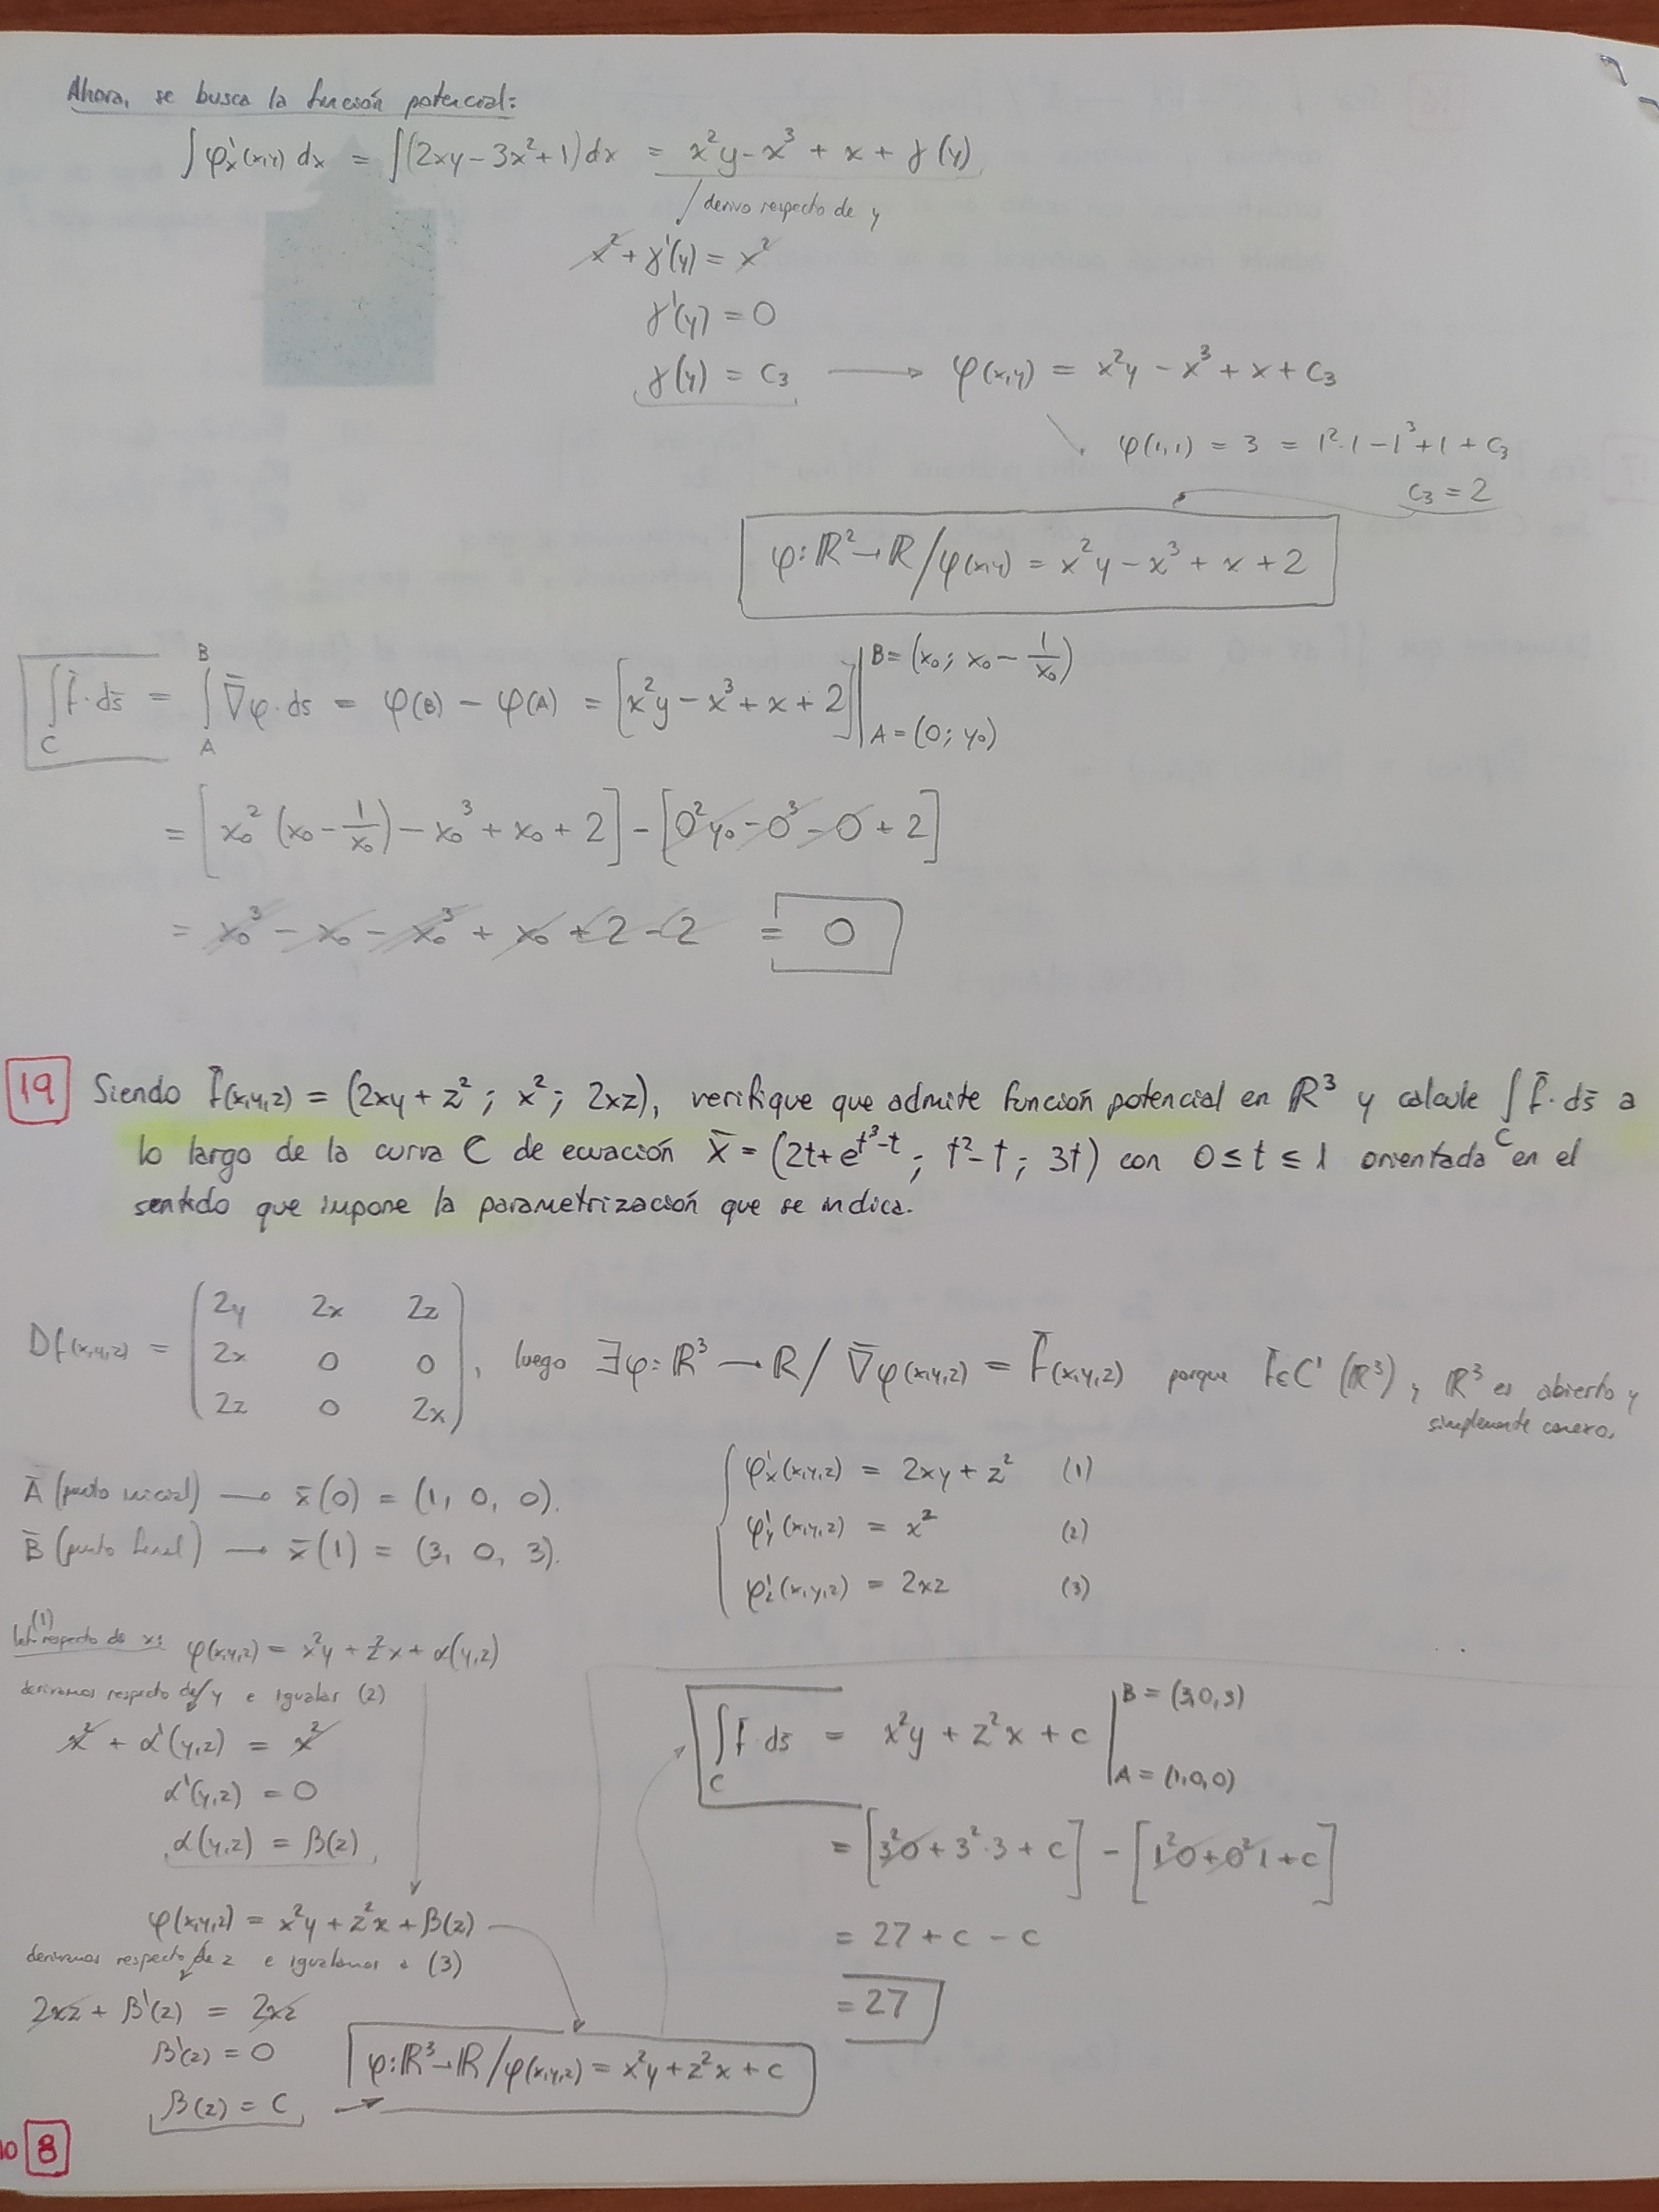 Ahora, se busca la función potencial:
∫φ'x(x,y) dx = ∫(2xy - 3x² + 1) dx = x²y - x³ + x + γ(y)
/ derivo respecto de y
x² + γ'(y) = x²
γ'(y) = 0
γ(y) = C₃ → φ(x,y) = x²y - x³ + x + C₃
φ(1,1) = 3 = 1²·1 - 1³ + 1 + C₃
C₃ = 2
φ: ℝ² → ℝ / φ(x,y) = x²y - x³ + x + 2
∫_C f̄·ds̄ = ∫_A^B ∇̄φ·ds = φ(B) - φ(A) = [x²y - x³ + x + 2] | B = (x₀; x₀ - 1/x₀) A = (0; y₀)
= [x₀² (x₀ - 1/x₀) - x₀³ + x₀ + 2] - [0²y₀ - 0³ - 0 + 2]
= x₀³ - x₀ - x₀³ + x₀ + 2 - 2 = 0
19 Siendo f̄(x,y,z) = (2xy + z²; x²; 2xz), verifique que admite función potencial en ℝ³ y calcule ∫_C f̄·ds̄ a
lo largo de la curva C de ecuación X̄ = (2t + e^(t³-t); t² - t; 3t) con 0 ≤ t ≤ 1 orientada en el
sentido que impone la parametrización que se indica.
Df(x,y,z) = (2y 2x 2z
2x 0 0
2z 0 2x), luego ∃φ: ℝ³ → ℝ / ∇̄φ(x,y,z) = f̄(x,y,z) porque f̄∈C¹(ℝ³), ℝ³ es abierto y
simplemente conexo.
Ā (punto inicial) → x̄(0) = (1, 0, 0).
B̄ (punto final) → x̄(1) = (3, 0, 3).
φ'x(x,y,z) = 2xy + z² (1)
φ'y(x,y,z) = x² (2)
φ'z(x,y,z) = 2xz (3)
(1) respecto de x: φ(x,y,z) = x²y + z²x + α(y,z)
derivamos respecto de y e igualar (2)
x² + α'(y,z) = x²
α'(y,z) = 0
α(y,z) = β(z)
φ(x,y,z) = x²y + z²x + β(z)
derivamos respecto de z e igualamos a (3)
2xz + β'(z) = 2xz
β'(z) = 0
β(z) = C
φ: ℝ³ → ℝ / φ(x,y,z) = x²y + z²x + C
∫_C f̄·ds̄ = x²y + z²x + C | B = (3,0,3) A = (1,0,0)
= [3²0 + 3²·3 + C] - [1²0 + 0²1 + C]
= 27 + C - C
= 27
10 8